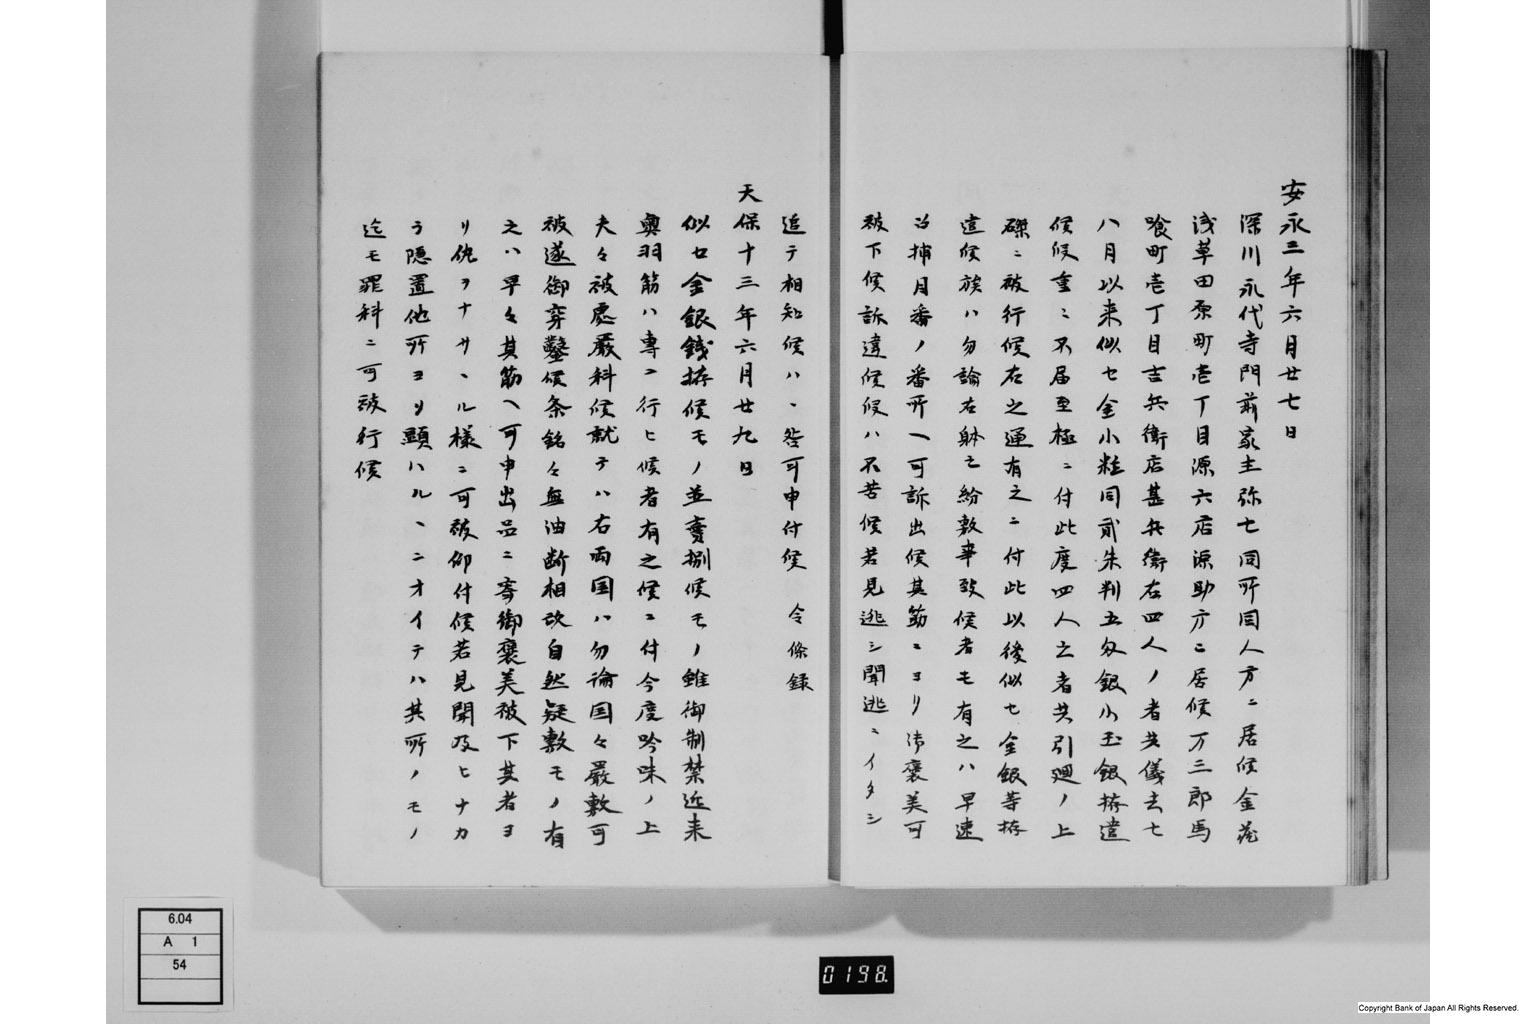 安永三年六月廿七日
深川永代寺門前家主弥七同所同人方ニ居候金蔵
浅草田原町壱丁目源六店源助方ニ居候万三郎馬
喰町壱丁目吉兵衛店甚兵衛右四人ノ者共儀去七
八月以来似セ金小粒同貳朱判五匁銀小玉銀拵遣
候候重ニ不届至極ニ付此度四人之者共引廻ノ上
磔ニ被行候右之通有之ニ付此以後似セ金銀等拵
遣候族ハ勿論右躰之紛敷事致候者モ有之ハ早速
召捕月番ノ番所ヘ可訴出候其筋ニヨリ御褒美可
被下候訴違候候ハ不苦候若見逃シ聞逃ニイタシ
追テ相知候ハヽ咎可申付候 令條録
天保十三年六月廿九日
似セ金銀銭拵候モノ並賣捌候モノ雖御制禁近来
奥羽筋ハ専ニ行ヒ候者有之候ニ付今度吟味ノ上
夫々被處厳科候就テハ右両国ハ勿論国々厳敷可
被遂御穿鑿候条銘々無油断相改自然疑敷モノ有
之ハ早々其筋ヘ可申出品ニ寄御褒美被下其者ヨ
リ仇ヲナサヽル様ニ可被仰付候若見聞及ヒナカ
ラ隠置他所ヨリ顕ハルヽニオイテハ其所ノモノ
迄モ罪科ニ可被行候
6.04
A 1
54
0198
Copyright Bank of Japan All Rights Reserved.